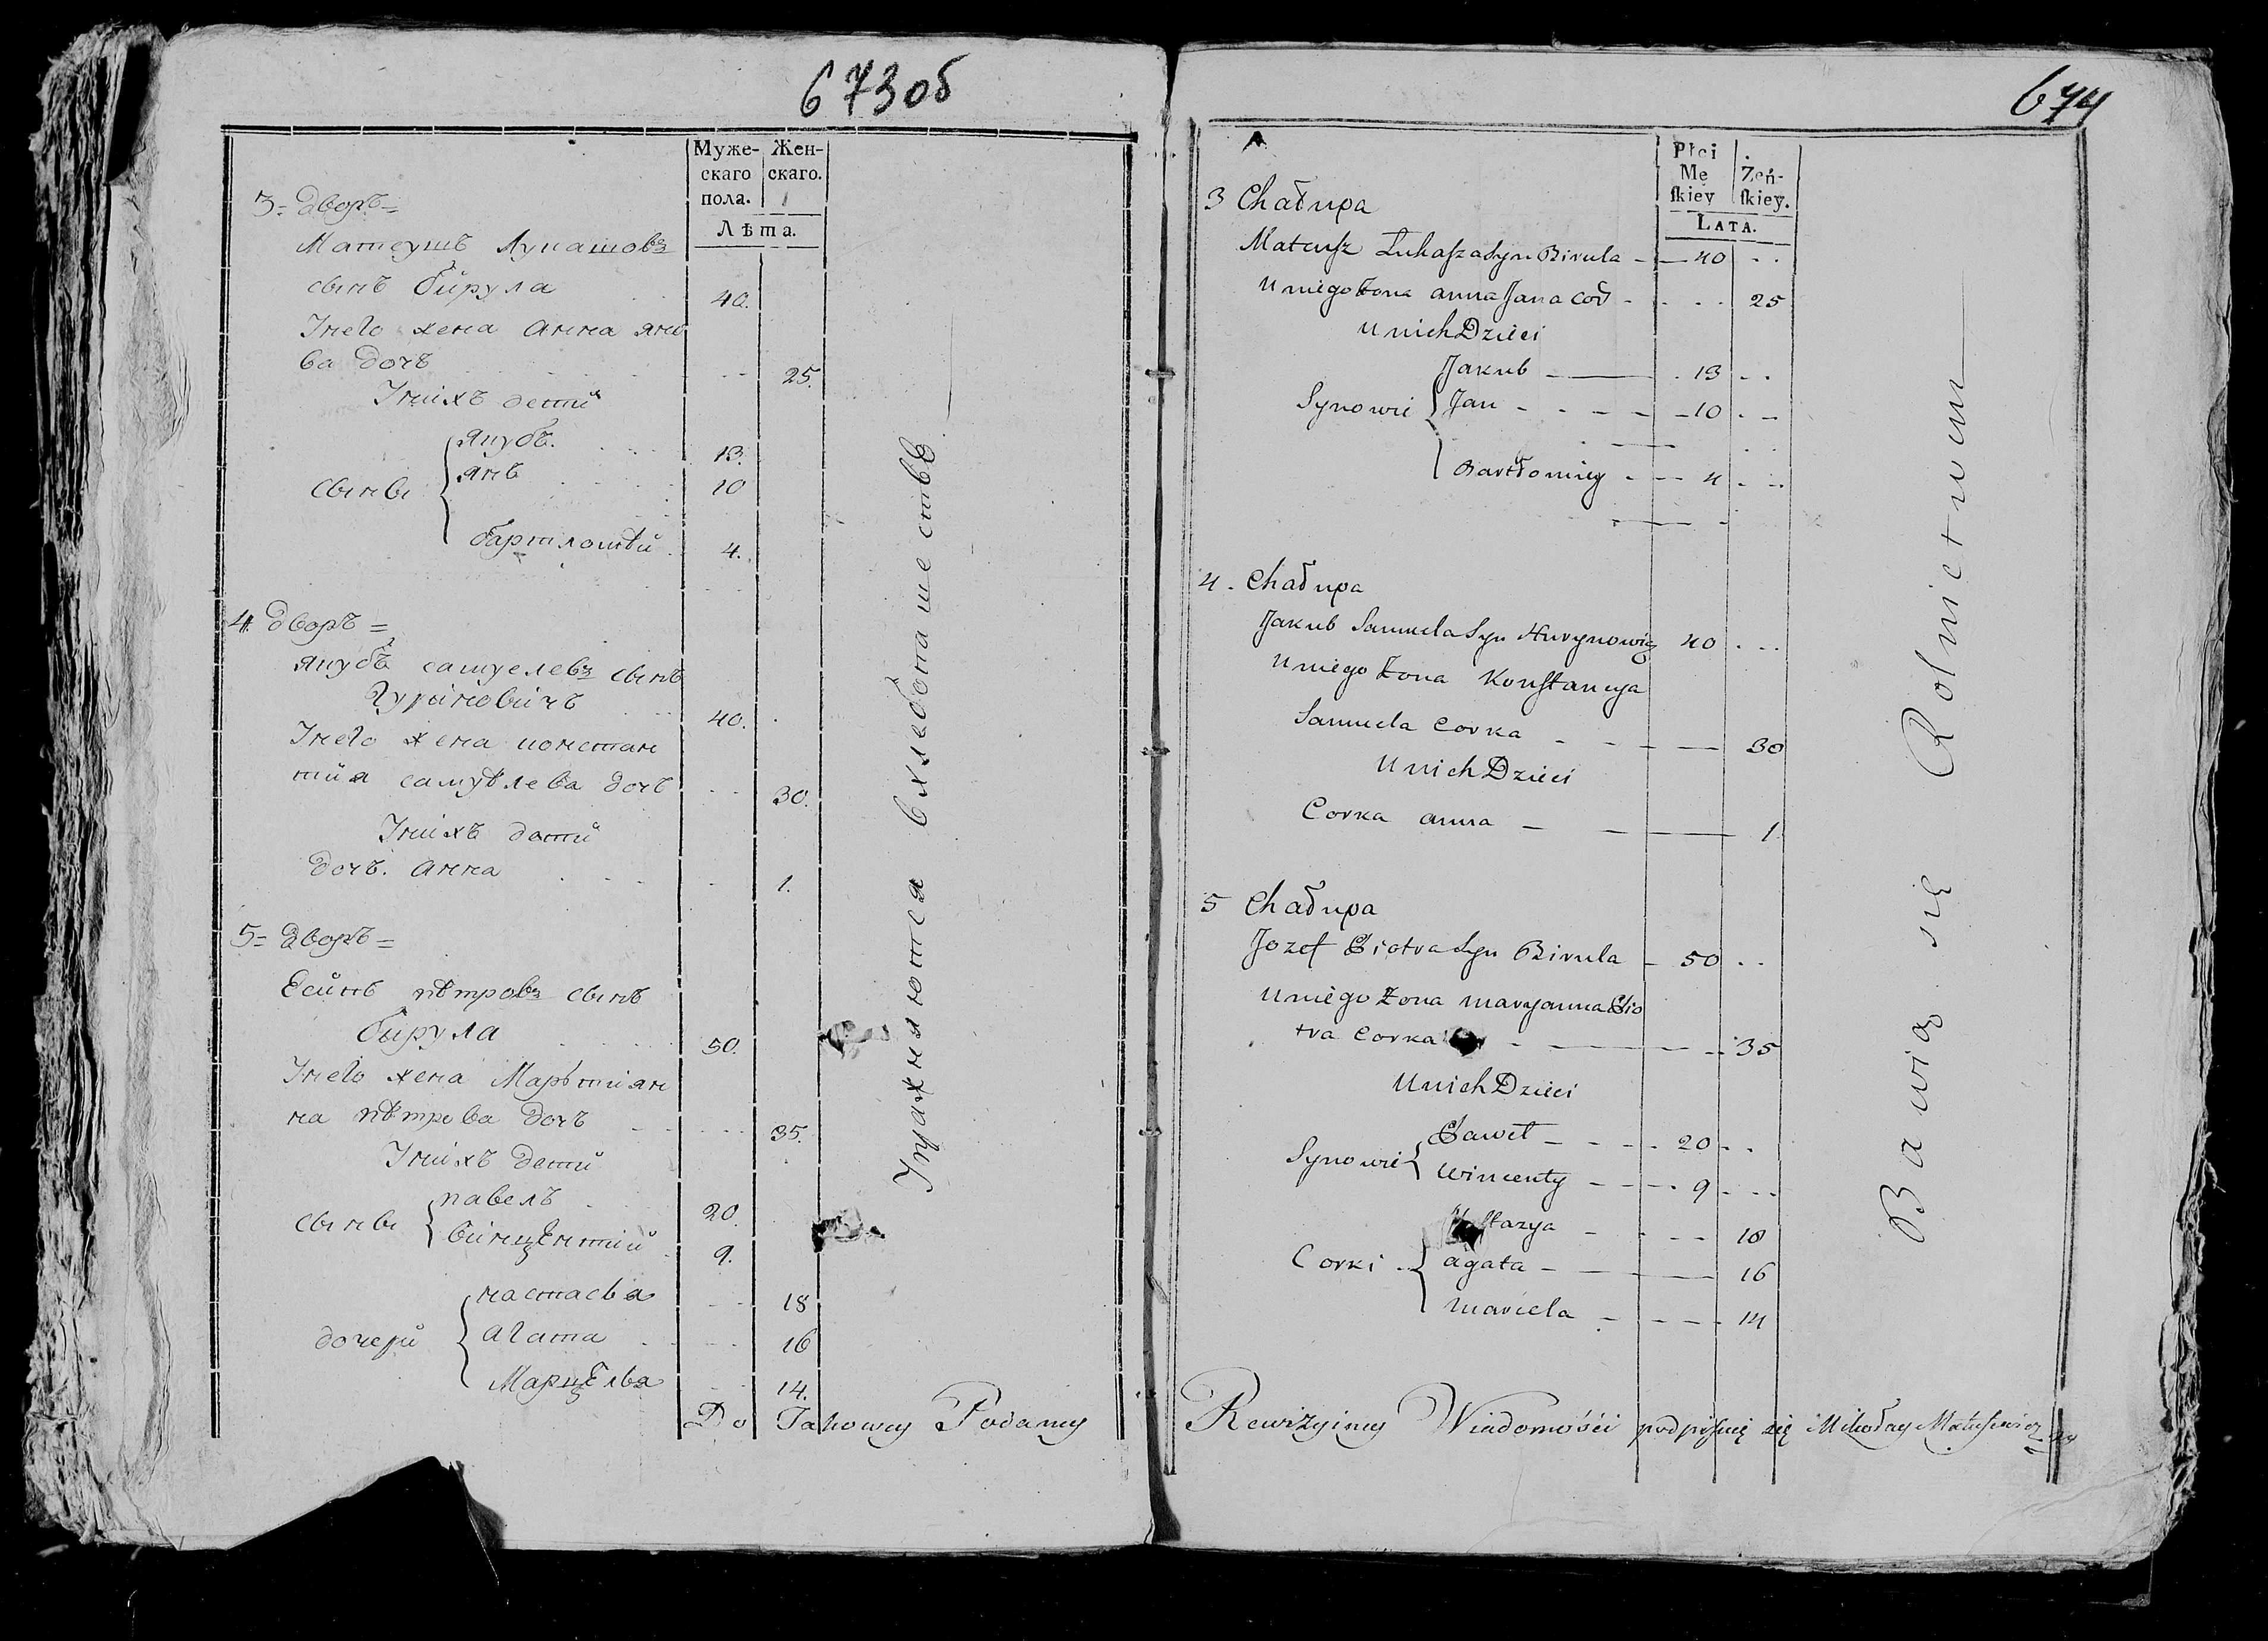 673об
Муже- Жен-
скаго скаго.
пола.
Лѣта.
3 = дворъ =
Матеушъ Лукашовъ
сынъ бирула 40.
Унего жена Анна яно
ва дочъ 25.
Унихъ дети
якубъ. 13.
сыны янъ 10
бартломѣй 4.
4. дворъ =
якубъ самуелевъ сынъ
гуриновичъ 40.
Унего жена констан
тия самуѣлева дочъ 30.
Унихъ дети
дочъ. Анна 1.
5 = дворъ =
Есипъ пѣтровъ сынъ
бирула 50.
Унего жена Марътиян
на пѣтрова дочъ 35.
Унихъ дети
павелъ 20.
сыны винцентий 9.
настасья 18
дочери Агата 16
Марцелья 14.
Упражняются в хлебопашестве
Do Takowey Podaney
674
Płci
Mę Żeń-
ſkiey ſkiey.
LATA.
3 Chałupa
Mateusz Łukasza Syn Birula 40
U niego Żona anna Jana cor 25
U nich Dzieci
Jakub 13
Synowie Jan 10
Bartłomiey 4
4. Chałupa
Jakub Samuela Syn Hurynowicz 40
U niego Żona Konstancya
Samuela Corka 30
U nich Dzieci
Corka anna 1
5 Chałupa
Jozef Piotra Syn Birula 50
U niego Żona maryanna Pio
tra Corka 35
U nich Dzieci
Paweł 20
Synowie Wincenty 9
18
Corki agata 16
marcela 14
Bawią się Rolnictwem
Rewizyiney Wiadomości podpisuię się Mikołay Matusewicz